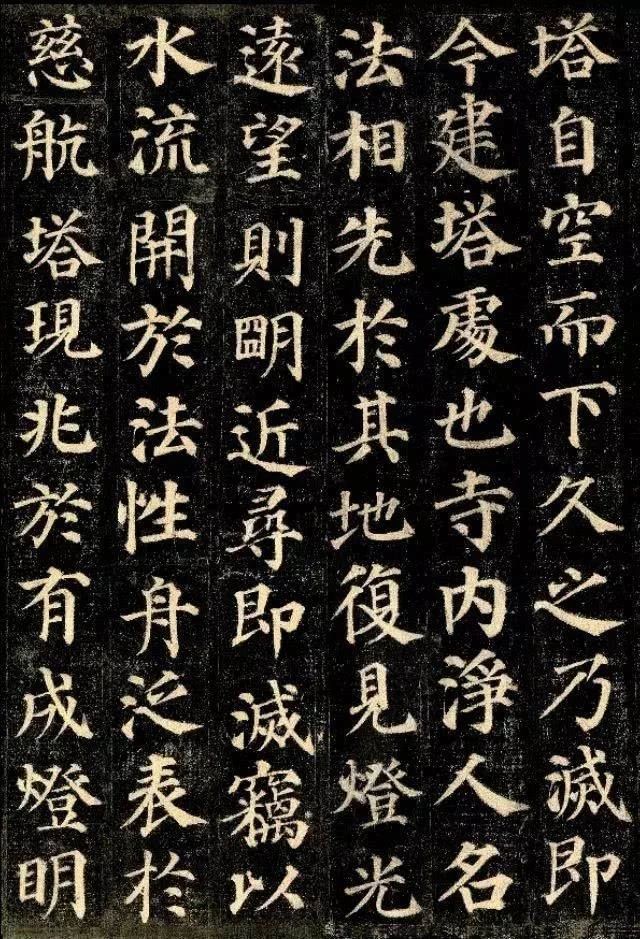 塔自空而下久之乃滅即
今建塔處也寺内淨人名
法相先於其地復見燈光
遠望則明近尋即滅竊以
水流開於法性舟泛表於
慈航塔現兆於有成燈明